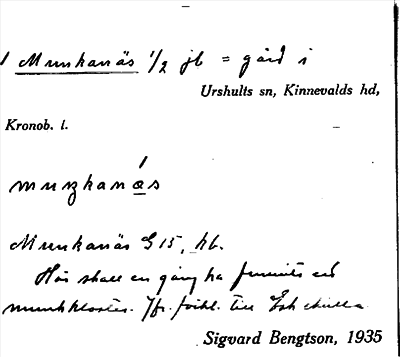 Munkanäs 1/2 jb = gård i
Urshults sn, Kinnevalds hd,
Kronob. l.
muŋkanạs
Munkanäs G 15, hb.
Här skall en gång ha funnits ett
munkkloster. Jfr. förkl. till
Sigvard Bengtson, 1935